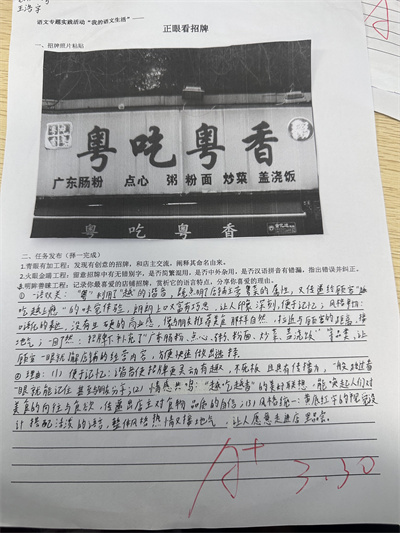 王浩宇
语文专题实践活动“我的语文生活”——
正眼看招牌
一、招牌照片粘贴
粤吃粤香
广东肠粉 点心 粥 粉面 炒菜 盖浇饭
粤 吃 粤 香
二、任务发布(择一完成)
1.青眼有加工程:发现有创意的招牌,和店主交流,阐释其命名由来。
2.火眼金睛工程:留意招牌中有无错别字,是否简繁混用,是否中外杂用,是否汉语拼音有错漏,指出错误并纠正。
3.明眸善睐工程:记录你最喜爱的店铺招牌,赏析它的语言特点,分享你喜爱的理由。
“粤”利用了“越”的谐音,既点明了店铺主营粤菜的属性,又传递给顾客“越
吃越上瘾”的味觉体验,朗朗上口又富有巧思,让人印象深刻,便于记忆;风格
口味化的表述,没有生硬的商业感,像与朋友推荐美食那样自然,拉近与顾客的距离,接
地气;招牌下补充了“广东肠粉、点心、粥、粉面、炒菜、盖浇饭”等品类,让
顾客一眼就了解店铺的经营内容,方便快速做出选择
② 理由:(1) 便于记忆:谐音使招牌更生动有趣,不死板,且具有传播力,一般路过看
一眼就能记住 (2) 情感共鸣:“越吃越香”的美好联想,能唤起人们对
美食的向往与食欲,传递出店主对食物品质的自信;(3) 风格统一:黄底红字的视觉设
计搭配活泼的语言,整体风格热情又接地气,让人愿意走进店里品尝。
A+
3.30
A